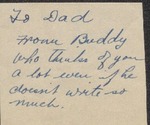 To Dad
From Buddy
who thinks of you
a lot even if he
doesn't write so
much.